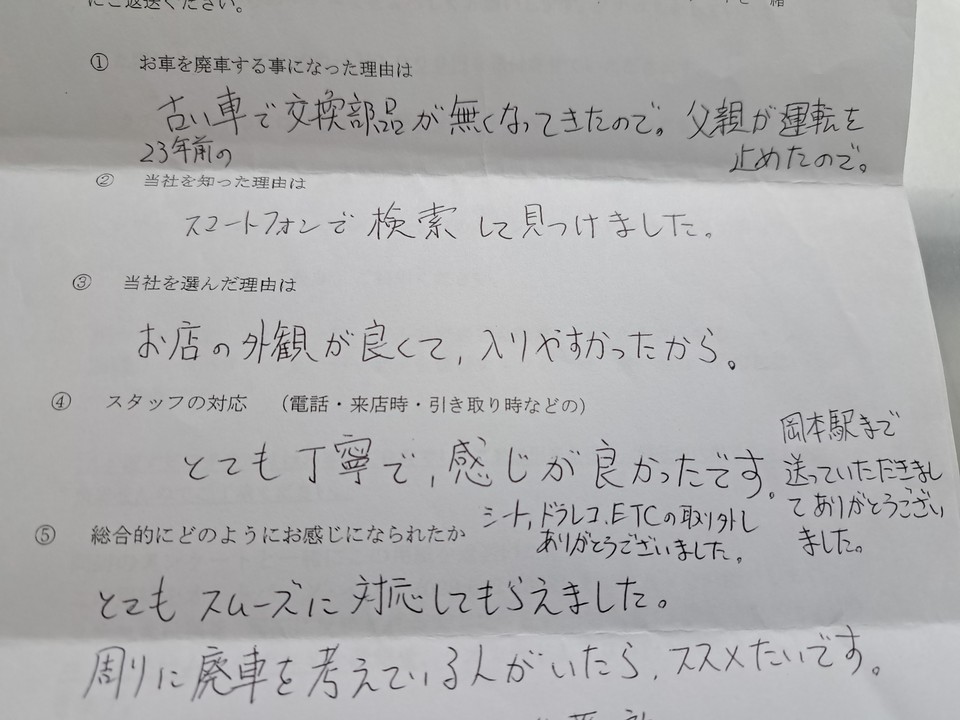 にご返送ください。
① お車を廃車する事になった理由は
古い車で交換部品が無くなってきたので。父親が運転を
止めたので。
23年前の
② 当社を知った理由は
スマートフォンで検索して見つけました。
③ 当社を選んだ理由は
お店の外観が良くて、入りやすかったから。
④ スタッフの対応 (電話・来店時・引き取り時などの)
とても丁寧で、感じが良かったです。
岡本駅まで
送っていただきまし
てありがとうござい
ました。
シート、ドラレコ、ETCの取り外し
ありがとうございました。
⑤ 総合的にどのようにお感じになられたか
とてもスムーズに対応してもらえました。
周りに廃車を考えている人がいたら、ススメたいです。